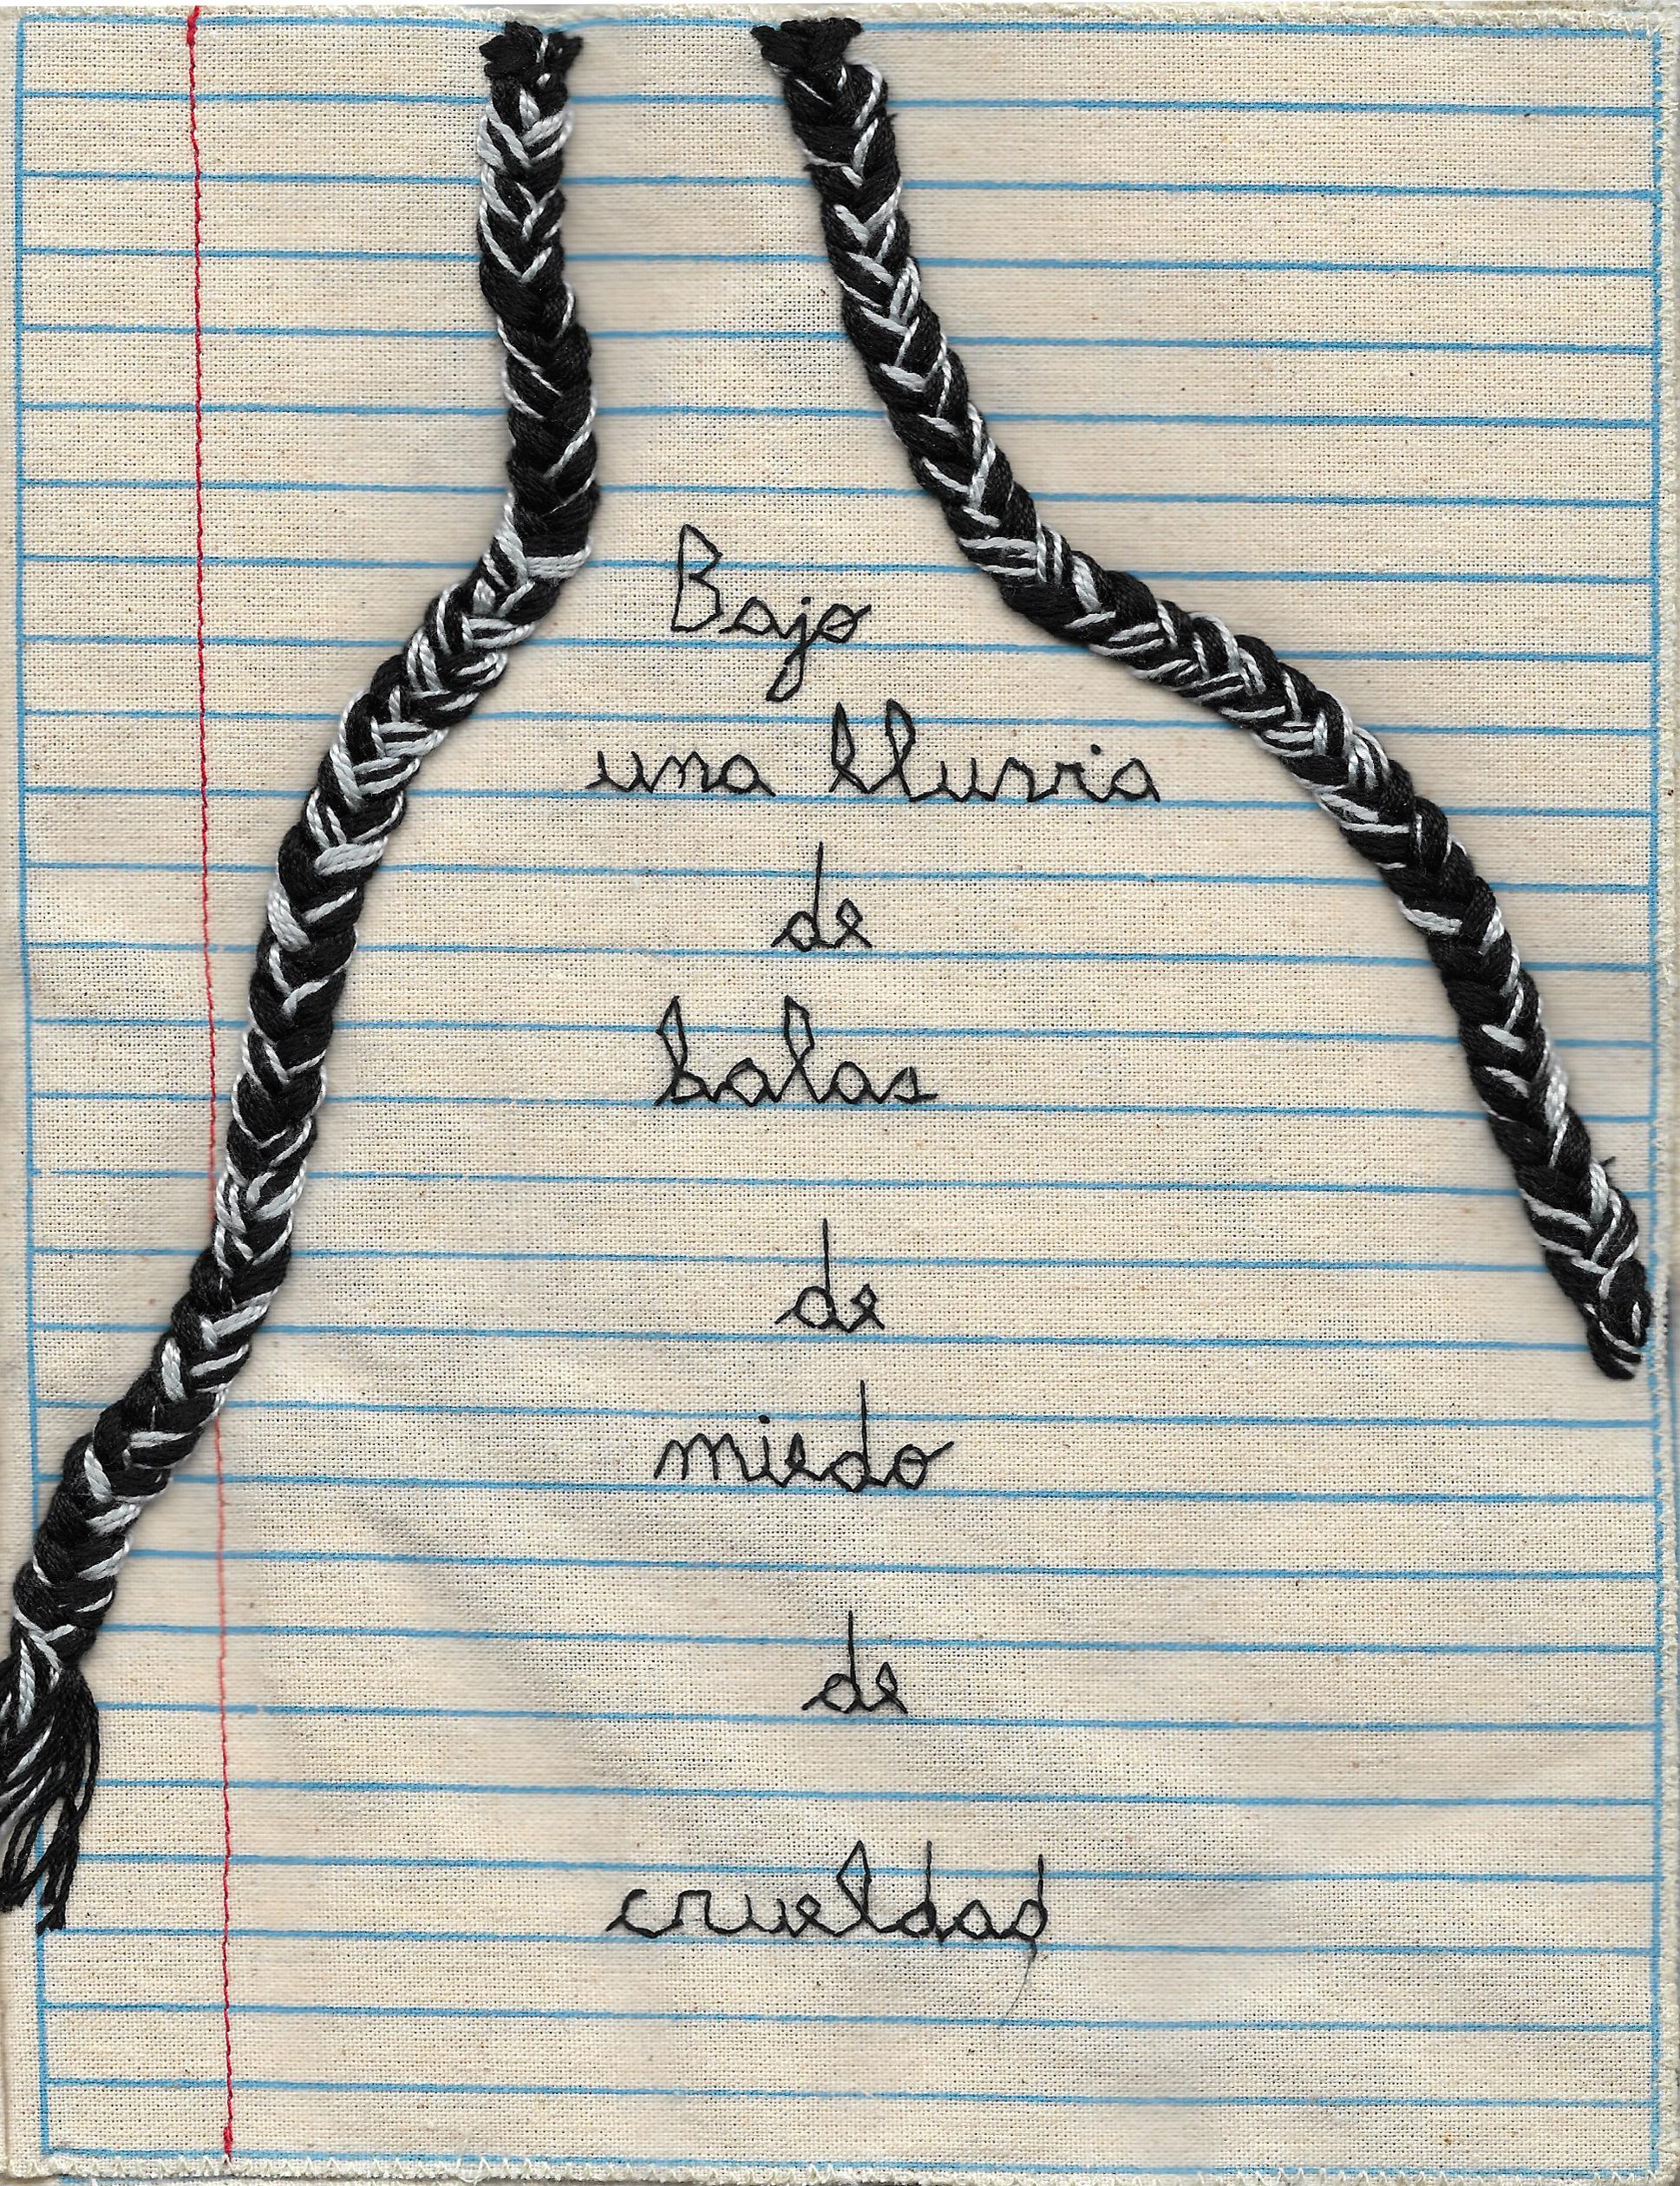 Bajo
una lluvia
de
balas
de
miedo
de
crueldad